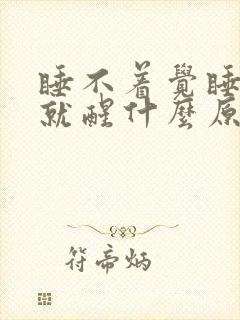 睡不着覺睡
就醒什麼原
符帝炳